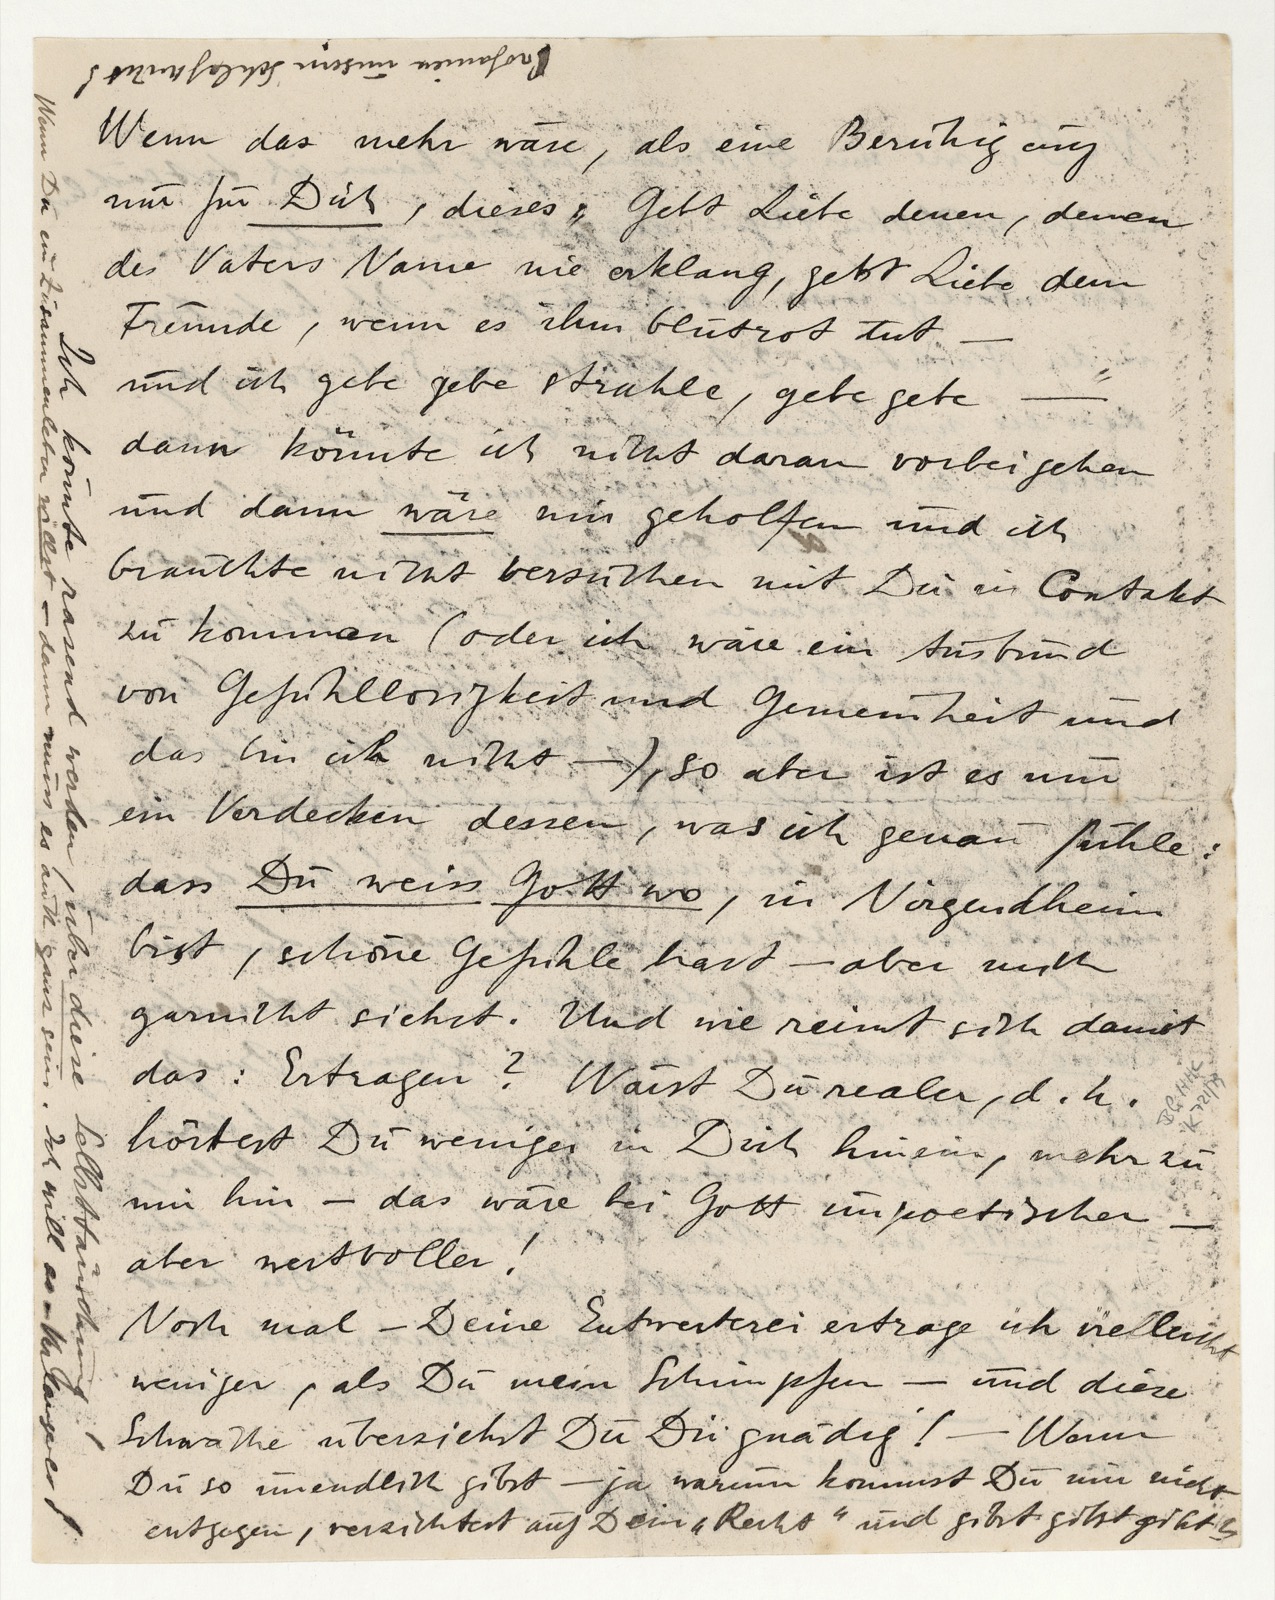 Wenn das mehr wäre, als eine Beruhigung
nur für Dich, dieses „Gebt Liebe denen, denen
des Vaters Name nie erklang, gebt Liebe dem
Freunde, wenn es ihm blutrot tut —
und ich gebe gebe strahle, gebe gebe — "
dann könnte ich nicht daran vorbeigehen
und dann wäre mir geholfen und ich
brauchte nicht versuchen mit Dir in Contakt
zu kommen (oder ich wäre ein Ausbund
von Gefühllosigkeit und Gemeinheit und
das bin ich nicht —), so aber ist es nur
ein Verdecken dessen, was ich genau fühle:
dass Du weiss Gott wo, in Nirgendheim
bist, schöne Gefühle hast — aber mich
garnicht siehst. Und wie reimt sich damit
das: Ertragen? Wärst Du realer, d. h.
hörtest Du weniger in Dich hinein, mehr zu
mir hin — das wäre bei Gott unpoetischer —
aber wertvoller!
Noch mal — Deine Entwerterei ertrage ich vielleicht
weniger, als Du mein Schimpfen — und diese
Schwäche überziehst Du Dir gnädig! — Wenn
Du so unendlich gibst — ja warum kommst Du mir nicht
entgegen, verzichtest auf Dein „Recht" und gibst gibst gibst
Ich könnte rasend werden, über diese Selbsttäuschung!
Wenn Du ein Zusammenleben willst — dann muss es auch ganz sein. Ich will es nicht länger!
unsern
BG HHC
K 721/79